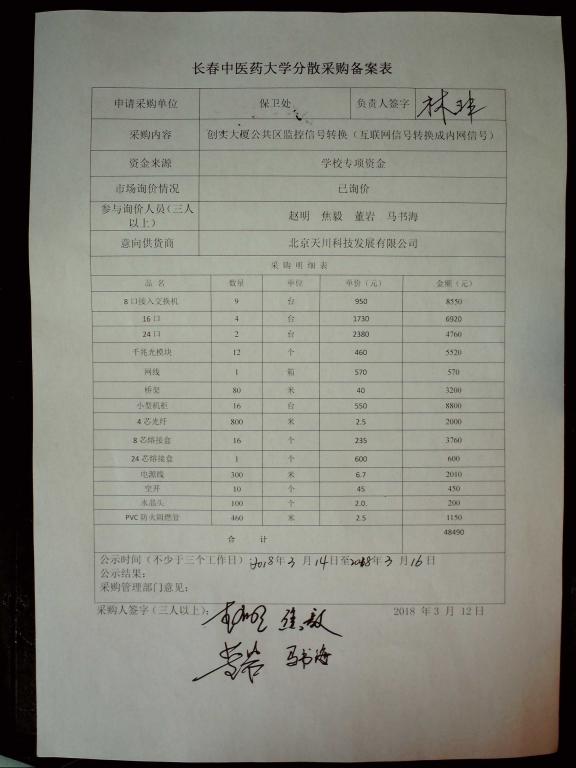 长春中医药大学分散采购备案表
申请采购单位 保卫处 负责人签字 林
采购内容 创实大厦公共区监控信号转换（互联网信号转换成内网信号）
资金来源 学校专项资金
市场询价情况 已询价
参与询价人员（三人以上） 赵明 焦毅 董岩 马书海
意向供货商 北京天川科技发展有限公司
采 购 明 细 表
品 名 数量 单位 单价（元） 金额（元）
8口接入交换机 9 台 950 8550
16口 4 台 1730 6920
24口 2 台 2380 4760
千兆光模块 12 个 460 5520
网线 1 箱 570 570
桥架 80 米 40 3200
小型机柜 16 台 550 8800
4芯光纤 800 米 2.5 2000
8芯熔接盒 16 个 235 3760
24芯熔接盒 1 个 600 600
电源线 300 米 6.7 2010
空开 10 个 45 450
水晶头 100 个 2.0. 200
PVC防火阻燃管 460 米 2.5 1150
合 计 48490
公示时间（不少于三个工作日）：2018年3月14日至2018年3月16日
公示结果：
采购管理部门意见：
采购人签字（三人以上）： 2018 年 3 月 12 日
赵明 焦毅
董岩 马书海